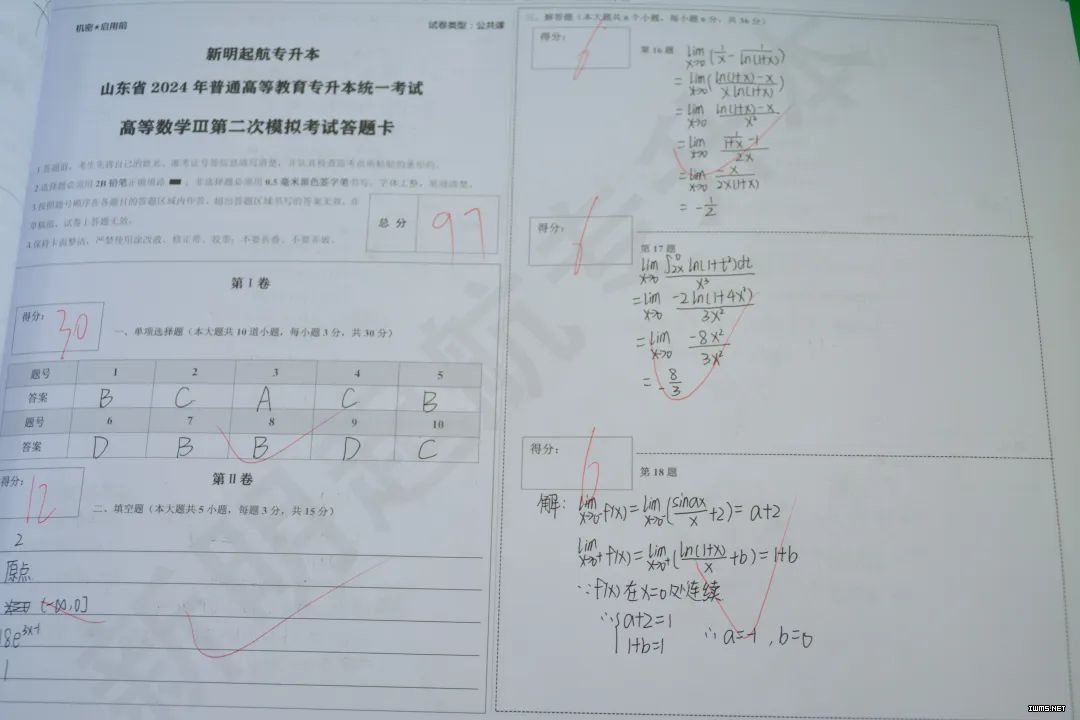 机密★启用前
试卷类型：公共课
新明起航专升本
山东省 2024 年普通高等教育专升本统一考试
高等数学Ⅲ第二次模拟考试答题卡
1.答题前，考生先将自己的姓名、准考证号等信息填写清楚，并认真检查
2.选择题必须用 2B 铅笔正确填涂 ；非选择题必须用 0.5 毫米黑色签字笔书写，字体工整，笔迹清楚。
3.按照题号顺序在各题目的答题区域内作答，超出答题区域书写的答案无效，在
草稿纸、试卷上答题无效。
4.保持卡面整洁，严禁使用涂改液、修正带、胶带；不要折叠、不要弄破。
总 分 97
第 I 卷
得分： 30
一、单项选择题（本大题共 10 道小题，每小题 3 分，共 30 分）
题号 1 2 3 4 5
答案 B C A C B
题号 6 7 8 9 10
答案 D B B D C
第 II 卷
得分： 12
二、填空题（本大题共 5 小题，每题 3 分，共 15 分）
2
原点
(-∞,0]
18e^{3x-1}
1
三、解答题（本大题共 6 个小题，每小题 6 分，共 36 分）
得分： 6
第 16 题
lim x→0 (1/x - 1/ln(1+x))
= lim x→0 (ln(1+x)-x / xln(1+x))
= lim x→0 ln(1+x)-x / x²
= lim x→0 (1/(1+x) -1) / 2x
= lim x→0 -x / 2x(1+x)
= -1/2
得分： 6
第 17 题
lim x→0 ∫_{2x}^{0} ln(1+t²)dt / x³
= lim x→0 -2ln(1+4x²) / 3x²
= lim x→0 -8x² / 3x²
= -8/3
得分： 6
第 18 题
解： lim x→0⁻ f(x) = lim x→0⁻ (sinax/x +2) = a+2
lim x→0⁺ f(x) = lim x→0⁺ (ln(1+x)/x +b) = 1+b
∵f(x)在x=0处连续
∴{a+2=1
1+b=1 ∴a=-1，b=0
IWMS.NET